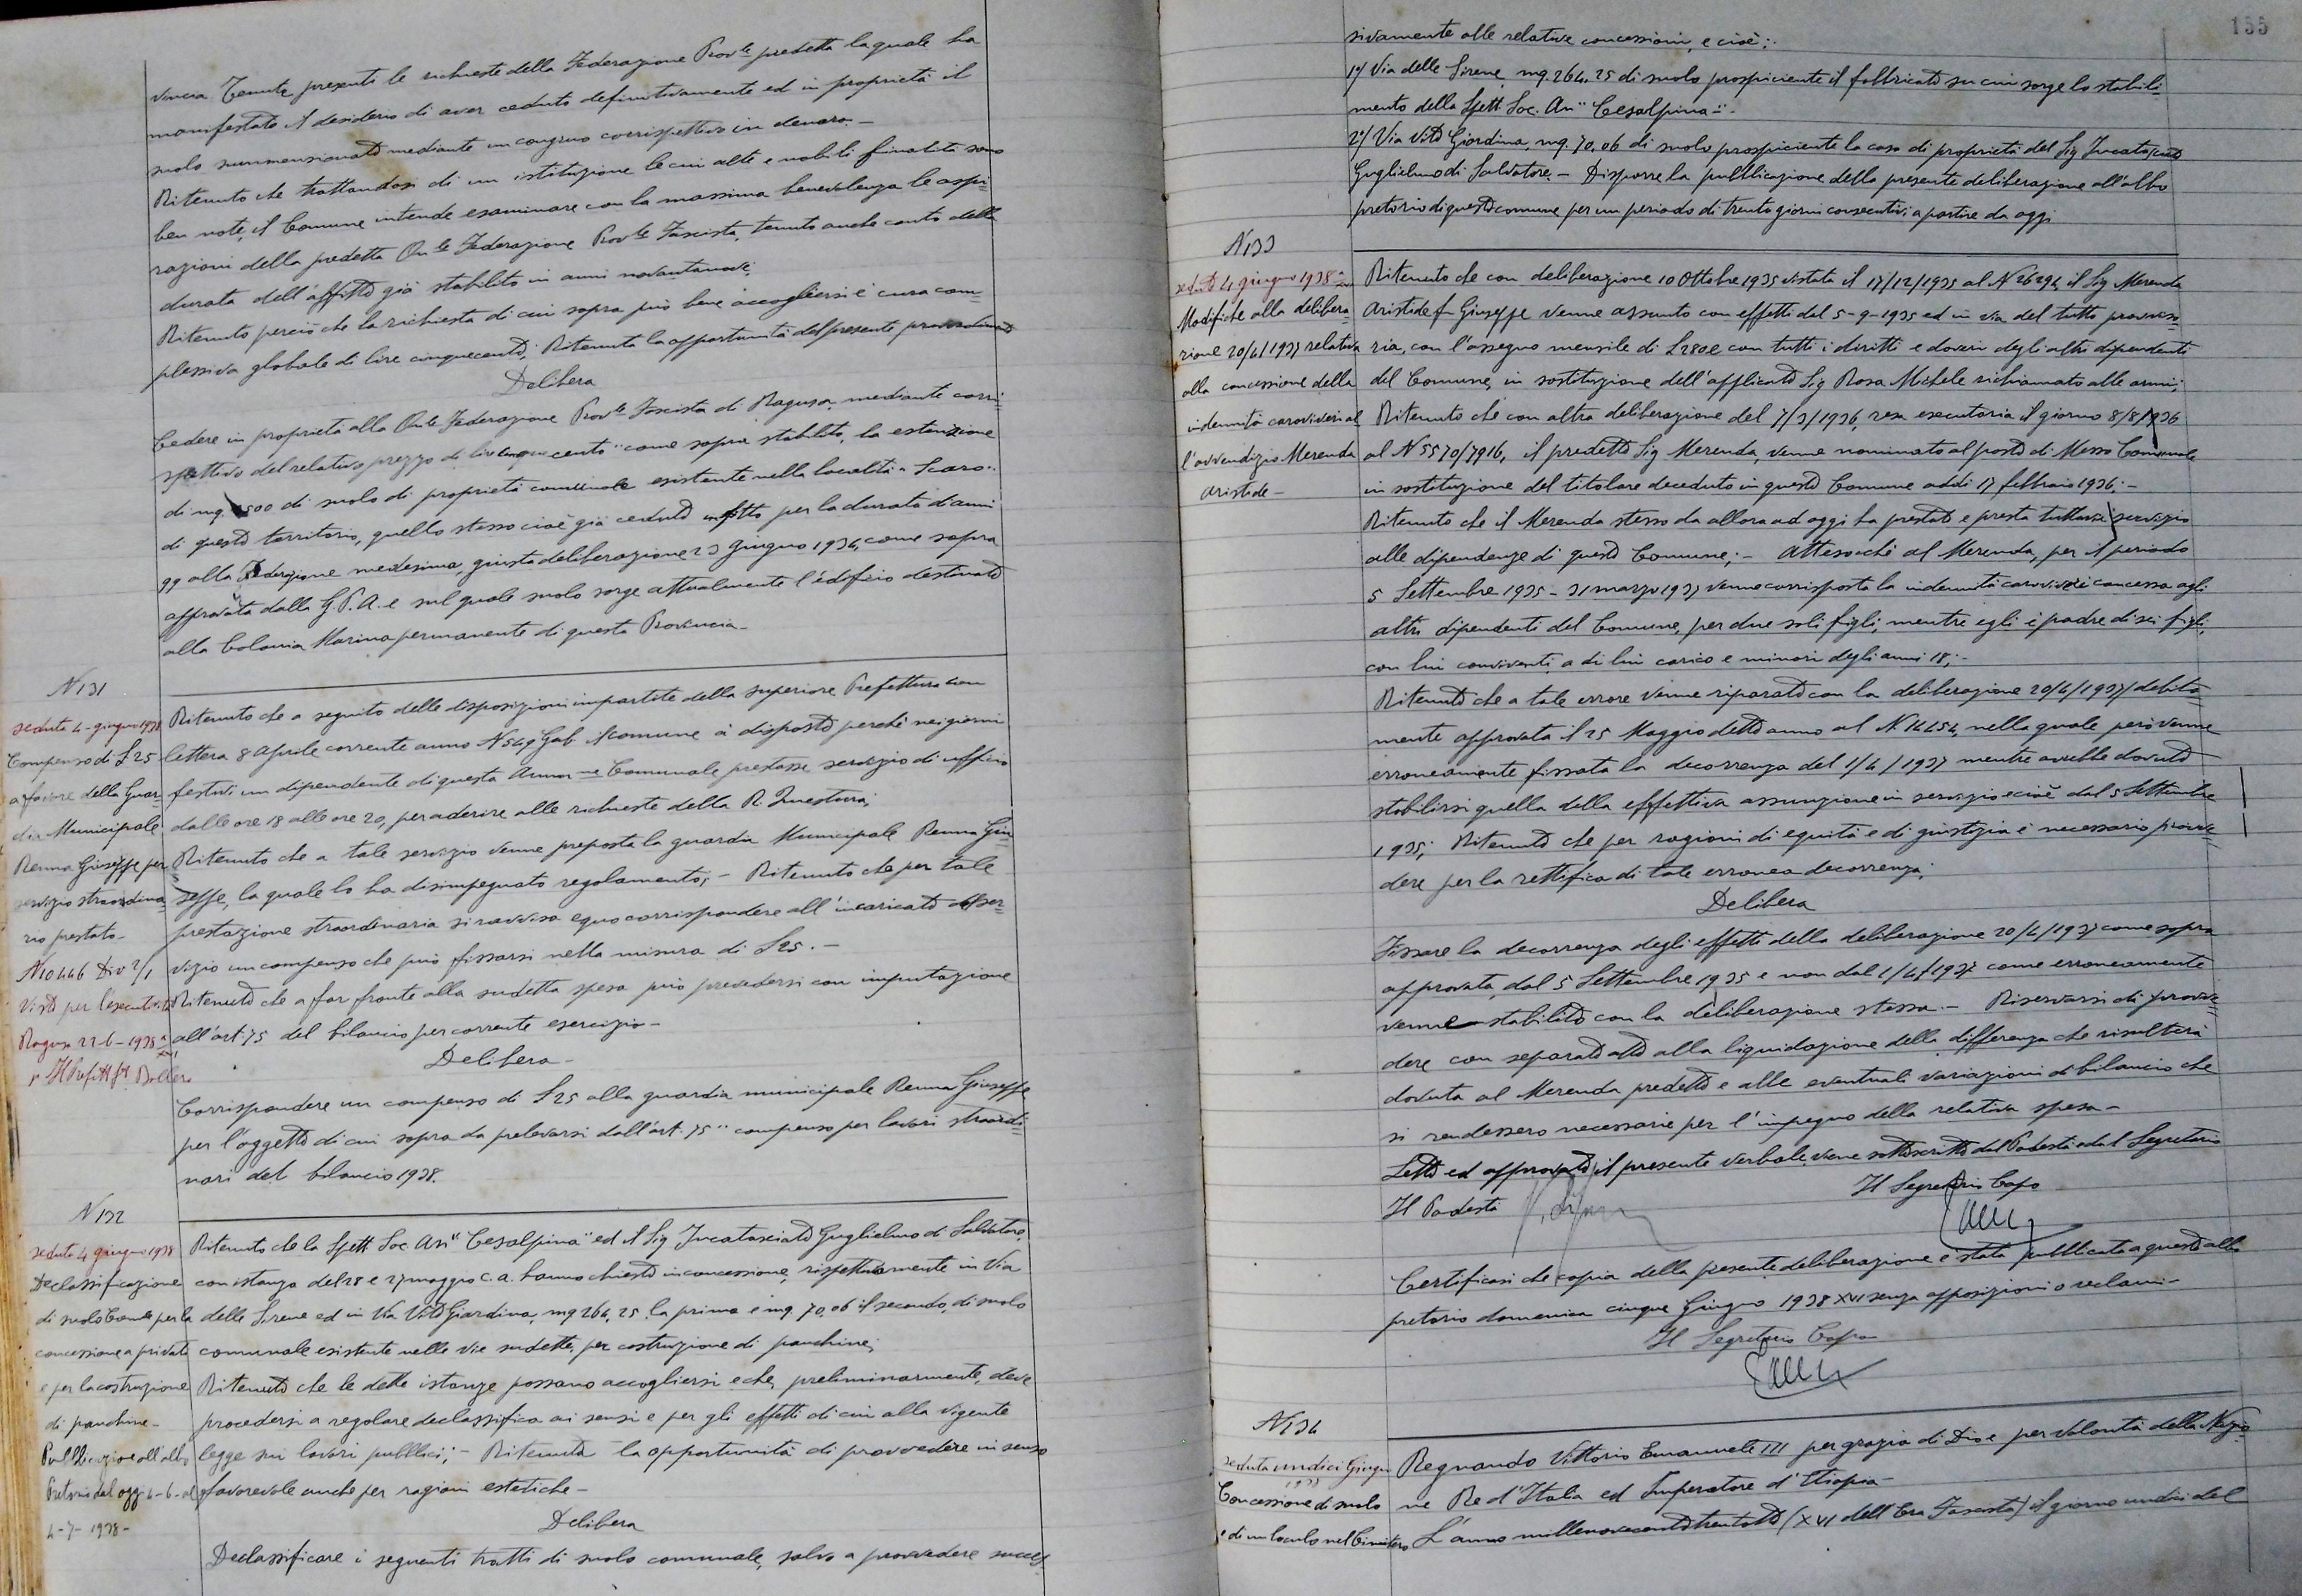 vincia. Tenute presenti le richieste della Federazione Prov.le predetta la quale ha
manifestato il desiderio di aver ceduto definitivamente ed in proprietà il
suolo summensionato mediante un congruo corrispettivo in denaro. -
Ritenuto che trattandosi di un istituzione le cui alte e nobili finalità sono
ben note, il Comune intende esaminare con la massima benevolenza le aspi-
razioni della predetta On.le Federazione Prov.le Fascista, tenuto anche conto della
durata dell'affitto già stabilito in anni novantanove;
Ritenuto perciò che la richiesta di cui sopra può bene accogliersi è cura com-
plessiva globale di lire cinquecento; Ritenuta la opportunità del presente provvedimento
Delibera
Cedere in proprietà alla On.le Federazione Prov.le Fascista di Ragusa, mediante corri-
spettivo del relativo prezzo di lire cinquecento" come sopra stabilito, la estenzione
di mq. 500 di suolo di proprietà comunale esistente nella località "Scaro"
di questo territorio, quello stesso cioè già ceduto in fitto per la durata di anni
99 alla Federazione medesima, giusta deliberazione 23 giugno 1934, come sopra
approvata dalla G.P.A. e sul quale suolo sorge attualmente l'edificio destinato
alla Colonia Marina permanente di questa Provincia -
N 131
seduta 4 - giugno 1938
Compenso di £ 25
a favore della Guar-
dia Municipale
Renna Giuseppe per
servizio straordina-
rio prestato -
N 10446 Div 2/1
Visto per l'esecutività
Ragusa 22-6-1938 XVI
p Il Prefetto
Ritenuto che a seguito delle disposizioni impartite della superiore Prefettura con
lettera 8 aprile corrente anno N 549 Gab il Comune à disposto perché nei giorni
festivi un dipendente di questa Amm.ne Comunale prestasse servizio di ufficio
dalle ore 18 alle ore 20, per aderire alle richieste della R. Questura;
Ritenuto che a tale servizio venne preposta la guardia Municipale Renna Giu-
seppe, la quale lo ha disimpegnato regolamento; - Ritenuto che per tale
prestazione straordinaria si ravvisa equo corrispondere all'incaricato del ser-
vizio un compenso che può fissarsi nella misura di £ 25. -
Ritenuto che a far fronte alla sudetta spesa può provvedersi con imputazione
all'art. 75 del bilancio per corrente esercizio -
Delibera -
Corrispondere un compenso di £ 25 alla guardia municipale Renna Giuseppe
per l'oggetto di cui sopra da prelevarsi dall'art. 75 "compenso per lavori straordi-
nari del bilancio 1938.
N 132
seduta 4 giugno 1938
Declassificazione
di suolo Com.le per la
concessione a privati
e per la costruzione
di panchine -
Pubblicazione all'albo
Pretorio dal oggi 4-6- al
4-7-1938 -
Ritenuto che la Spett. Soc. An. "Cesalpina" ed il Sig Incatasciato Guglielmo di Salvatore,
con istanza del 28 e 27 maggio c.a. hanno chiesto in concessione, rispettivamente in Via
delle Sirene ed in Via Vito Giardina, mq 264,25 la prima e mq. 70,06 il secondo, di suolo
comunale esistente nelle vie sudette, per costruzione di panchine;
Ritenuto che le dette istanze possano accogliersi e che, preliminarmente, deve
procedersi a regolare declassifica ai sensi e per gli effetti di cui alla vigente
legge sui lavori pubblici; - Ritenuta la opportunità di provvedere in senso
favorevole anche per ragioni estetiche -
Delibera
Declassificare i seguenti tratti di suolo comunale, salvo a provvedere succes
155
sivamente alle relative concessioni, e cioè:
1°/ Via delle Sirene mq. 264,25 di suolo prospiciente il fabbricato su cui sorge lo stabili-
mento della Spett. Soc. An "Cesalpina".
2°/ Via Vito Giardina, mq. 70,06 di suolo prospiciente la casa di proprietà del Sig Incatasciato
Guglielmo di Salvatore. - Disporre la pubblicazione della presente deliberazione all'albo
pretorio di questo comune per un periodo di trenta giorni consecutivi a partire da oggi
N 133
seduta 4 giugno 1938 XVI
Modifiche alla delibera-
zione 20/4/1937 relativa
alla concessione della
indennità caroviveri al
l'avvendizio Merenda
Aristide -
Ritenuto che con deliberazione 10 Ottobre 1935 vistata il 17/12/1935 al N 26294 il Sig Merenda
Aristide fu Giuseppe venne assunto con effetti dal 5-9-1935 ed in via del tutto provviso-
ria, con l'assegno mensile di £ 280 e con tutti i diritti e doveri degli altri dipendenti
del Comune, in sostituzione dell'applicato Sig Rosa Michele richiamato alle armi;
Ritenuto che con altra deliberazione del 7/3/1936, resa esecutoria il giorno 8/8/1936
al N 5570/7916, il predetto Sig Merenda, venne nominato al posto di Messo Comunale
in sostituzione del titolare deceduto in questo Comune addì 17 febbraio 1936; -
Ritenuto che il Merenda stesso da allora ad oggi ha prestato e presta tuttavia servizio
alle dipendenze di questo Comune; - Attesochè al Merenda, per il periodo
5 Settembre 1935 - 31 marzo 1937 venne corrisposta la indennità caroviveri concessa agli
altri dipendenti del Comune, per due soli figli, mentre egli è padre di sei figli,
con lui conviventi, a di lui carico e minori degli anni 18; -
Ritenuto che a tale errore venne riparato con la deliberazione 20/4/1937 debita-
mente approvata il 25 Maggio detto anno al N. 14454, nella quale però venne
erroneamente fissata la decorrenza del 1/4/1937 mentre avrebbe dovuto
stabilirsi quella della effettiva assunzione in servizio e cioè dal 5 Settembre
1935; Ritenuto che per ragioni di equità e di giustizia è necessario provve-
dere per la rettifica di tale erronea decorrenza;
Delibera
Fissare la decorrenza degli effetti della deliberazione 20/4/1937 come sopra
approvata, dal 5 Settembre 1935 e non dal 1/4/1937 come erroneamente
venne stabilito con la deliberazione stessa. - Riservarsi di provve-
dere con separato atto alla liquidazione della differenza che risulterà
dovuta al Merenda predetto e alle eventuali variazioni di bilancio che
si rendessero necessarie per l'impegno della relativa spesa -
Letto ed approvato il presente verbale, viene sottoscritto dal Podestà e dal Segretario
Il Podestà
Il Segretario Capo
Certificasi che copia della presente deliberazione è stata pubblicata a questo albo
pretorio domenica cinque Giugno 1938 XVI senza opposizioni o reclami -
Il Segretario Capo
N 134
seduta undici Giugno
1938
Concessione di suolo
e di un loculo nel Cimitero
Regnando Vittorio Emanuele III per grazia di Dio e per volontà della Nazio-
ne Re d'Italia ed Imperatore d'Etiopia -
L'anno millenovecentotrentotto (XVI dell'Era Fascista) il giorno undici del